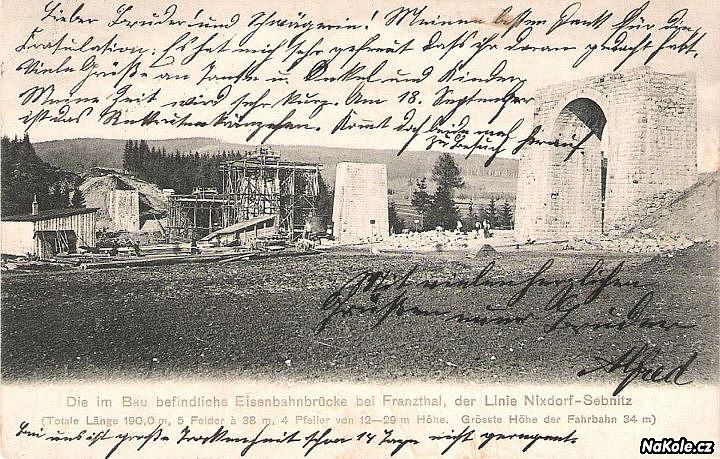 Lieber Bruder und Schwägerin! Meinen besten Dank für die
Gratulation. Es hat mich sehr gefreut dass ihr daran gedacht habt.
Viele Grüße an Tante u. Onkel und Kinder
Meine Zeit wird sehr kurz. Am 18. September
ist das Rekruteneinziehen. Kommt doch beide mal
zu Besuch herauf
Mit vielen herzlichen
Grüßen euer Bruder
Alfred
Die im Bau befindliche Eisenbahnbrücke bei Franzthal, der Linie Nixdorf-Sebnitz
(Totale Länge 190,0 m, 5 Felder à 38 m, 4 Pfeiler von 12–29 m Höhe. Grösste Höhe der Fahrbahn 34 m)
Bei uns ist große Trockenheit schon 14 Tage nicht geregnet.
NaKole.cz